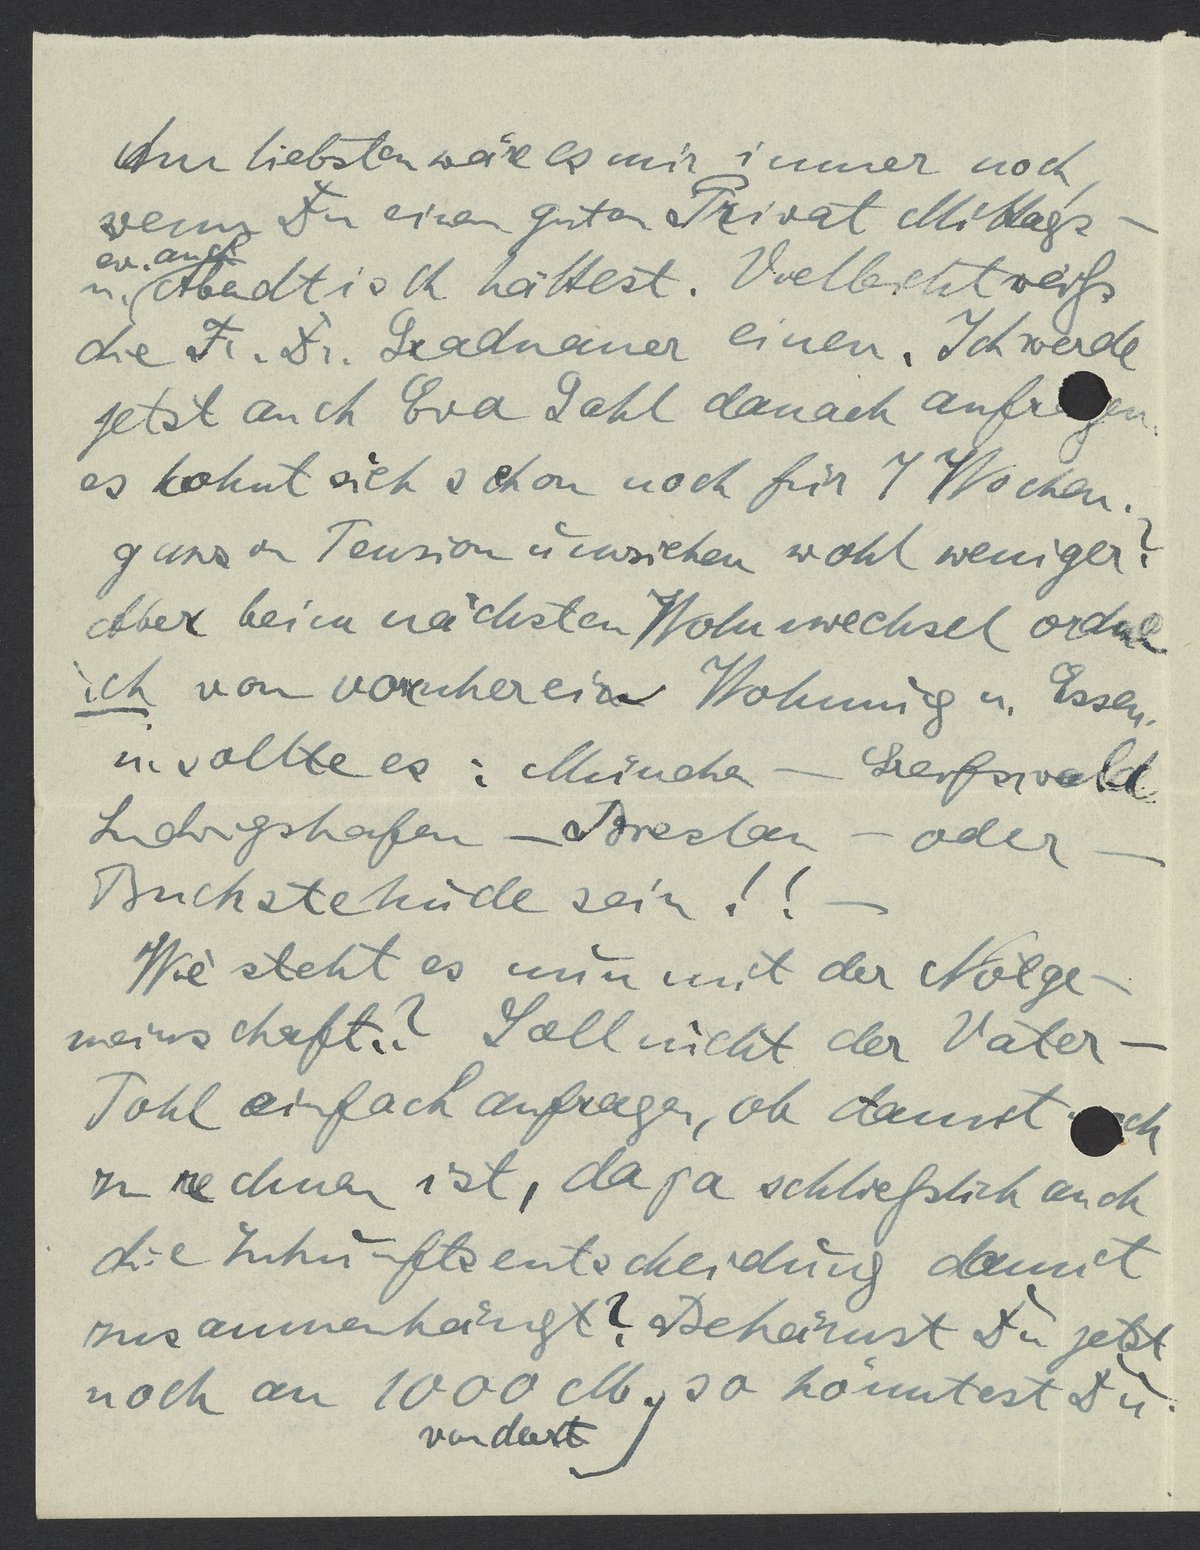 Am liebsten wäre es mir immer noch,
wenn Du einen guten Privat Mittags-
ev. auch
u. Abendtisch hättest. Vielleicht weiß
die Fr. Dr. Gradnauer einen. Ich werde
jetzt auch Eva danach anfragen.
es lohnt sich schon noch für 7 Wochen.
ganz in Pension umziehen wohl weniger?
Aber beim nächsten Wohnwechsel ordne
ich von vornherein Wohnung u. Essen,
u. sollte es: München – Greifswald
Ludwigshafen – Breslau – oder –
Buchstehude sein!! –
Wie steht es nun mit der Notge-
meinschaft.? Soll nicht der Vater-
Pohl einfach anfragen, ob damit noch
zu rechnen ist, da ja schließlich auch
die Zukunftsentscheidung damit
zusammenhängt? Bekämst Du jetzt
noch an 1000 M, so könntest Du
von dort